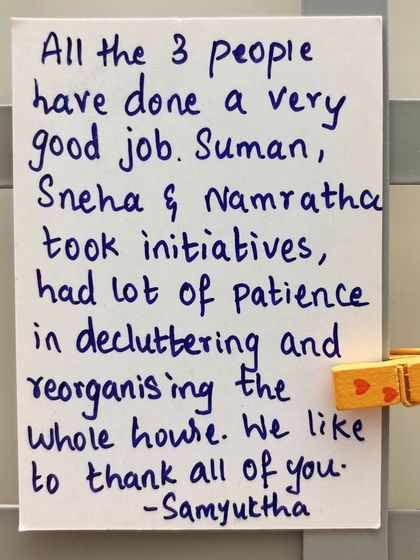 All the 3 people
have done a very
good job. Suman,
Sneha & Namratha
took initiatives,
had lot of patience
in decluttering and
reorganising the
whole house. We like
to thank all of you.
-Samyuktha